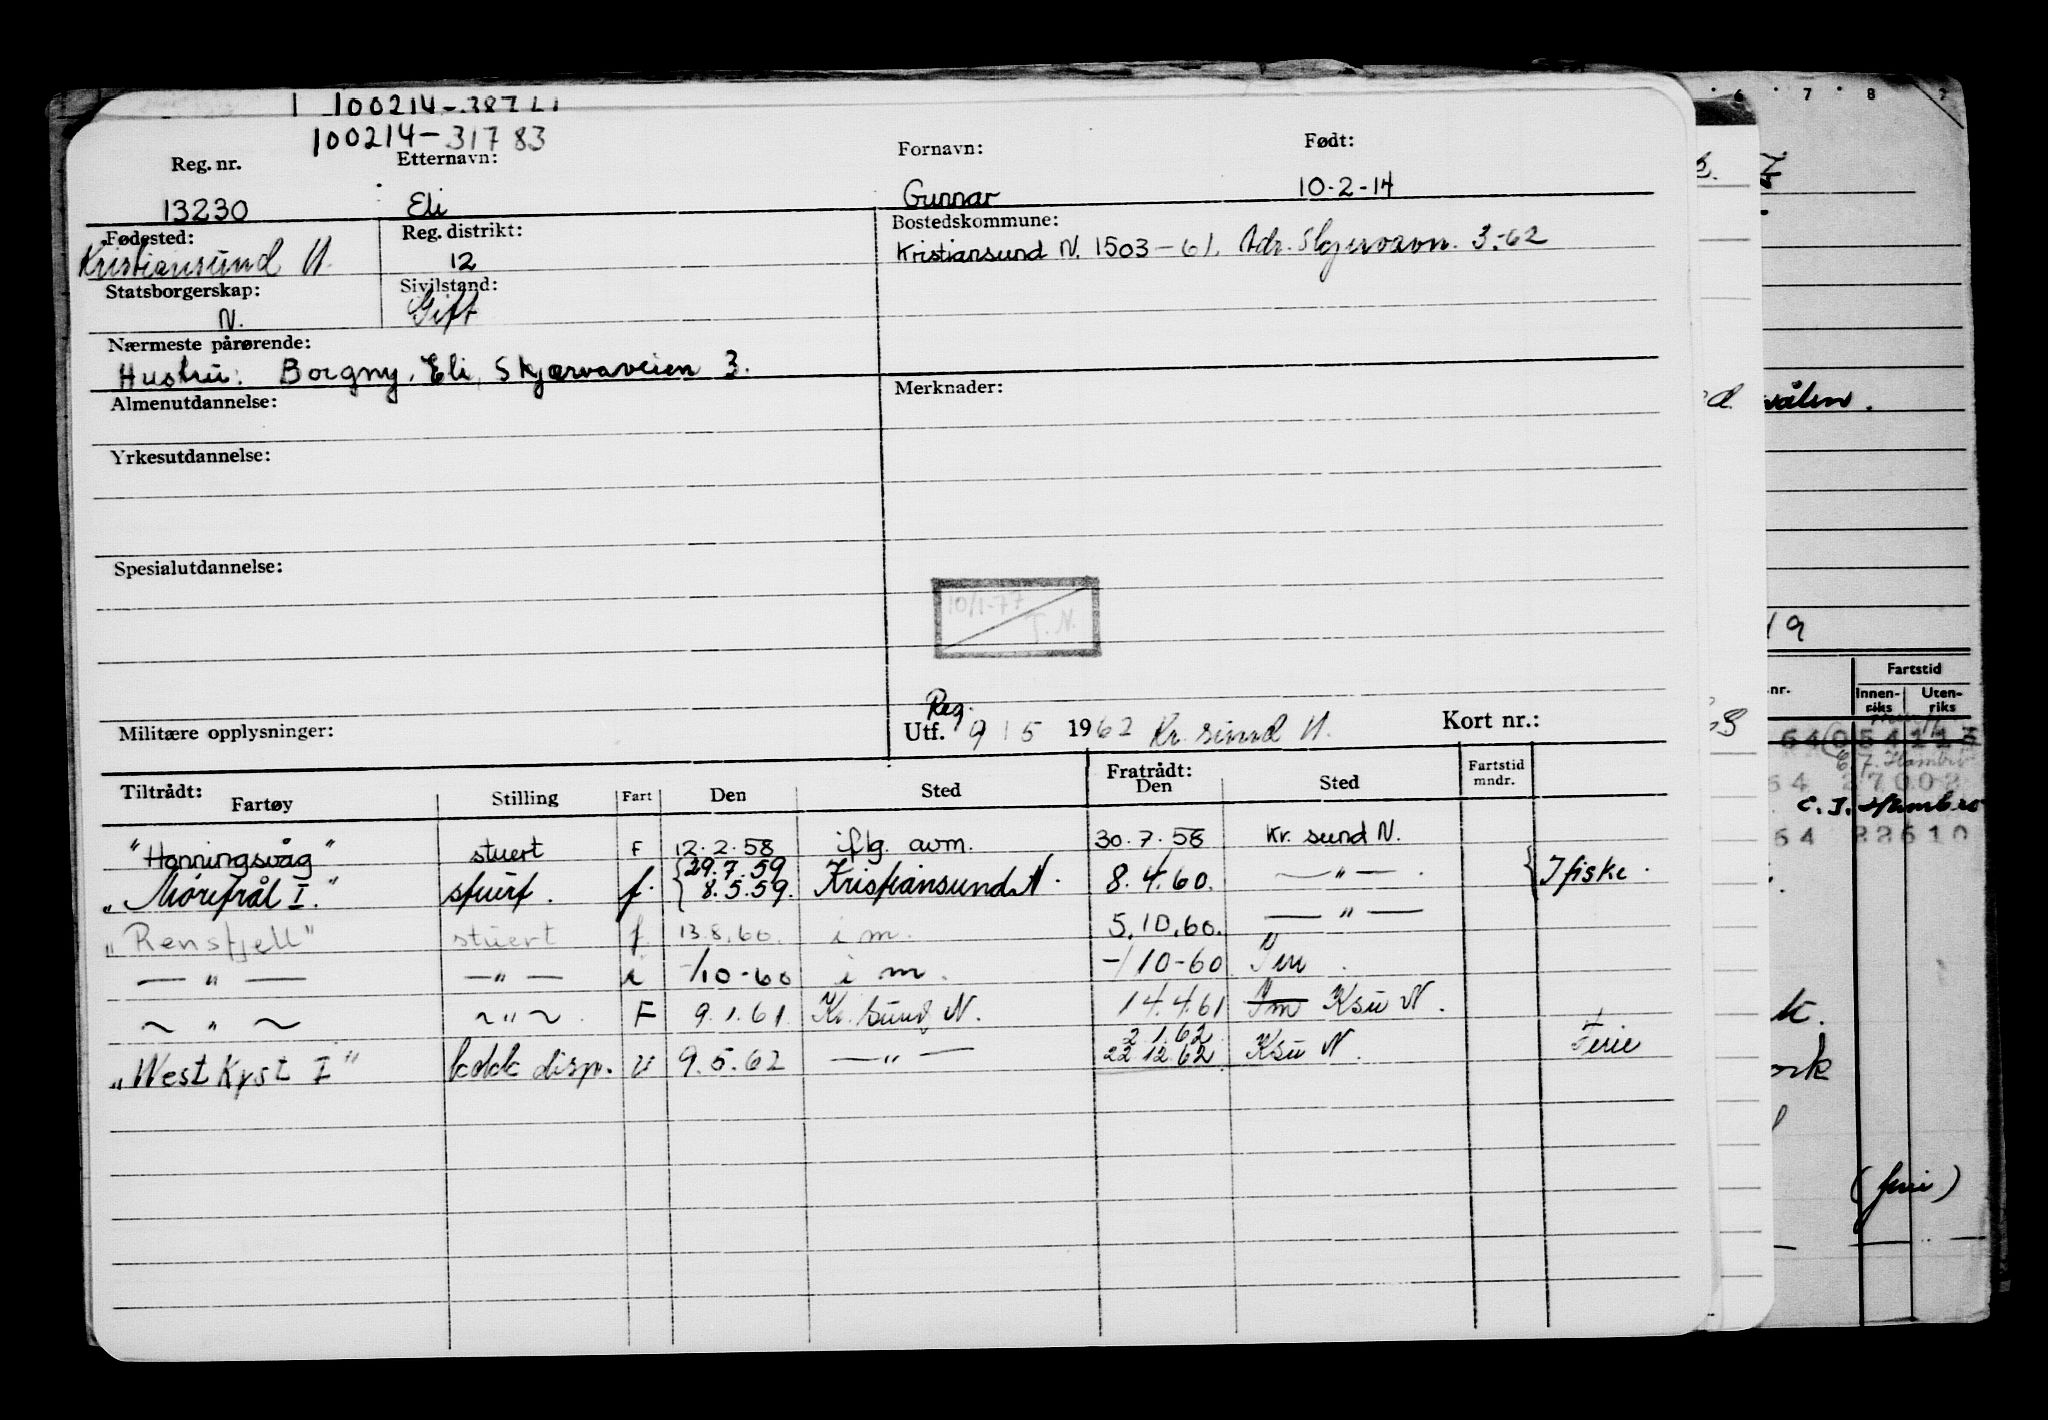 100214-31783
Reg. nr. Etternavn: Fornavn: Født:
13230 Eli Gunnar 10-2-14
Fødested: Reg. distrikt: Bostedskommune:
Kristiansund N. 12 Kristiansund N. 1503-61. Adr. 3-62
Statsborgerskap: Sivilstand:
N. Gift
Nærmeste pårørende:
Hustru: Borgny, Eli, Skjærvaveien 3.
Almenutdannelse: Merknader:
Yrkesutdannelse:
Spesialutdannelse:
10/1-77
T. N.
Reg.
Militære opplysninger: Utf. 9 / 5 1962 Kr. sund N. Kort nr.:
Tiltrådt: Fratrådt:
Fartøy Stilling Fart Den Sted Den Sted Fartstid mndr.
"Honningsvåg" stuert F 12.2.58 iflg. avm. 30.7.58 Kr. sund N.
29.7.59
"Møretrål I." stuert. f. { 8.5.59. Kristiansund N. 8.4.60. —"—. { I fiske.
"Rensfjell" stuert f. 13.8.60. i m. 5.10.60. —"—
—"— —"— i -/10-60 i m. -/10-60
~"~ ~"~. F 9.1.61 Kr. sund N. 14.4.61 Im Ksu N.
2.1.62
"West Kyst I" kokk disp. u 9.5.62 —"— 22.12.62 Ksu N. Ferie
6 7 8
vålen.
19
Fartstid
nr. Innenriks Utenriks
C. J. Hambro
k.
ork
(feri)